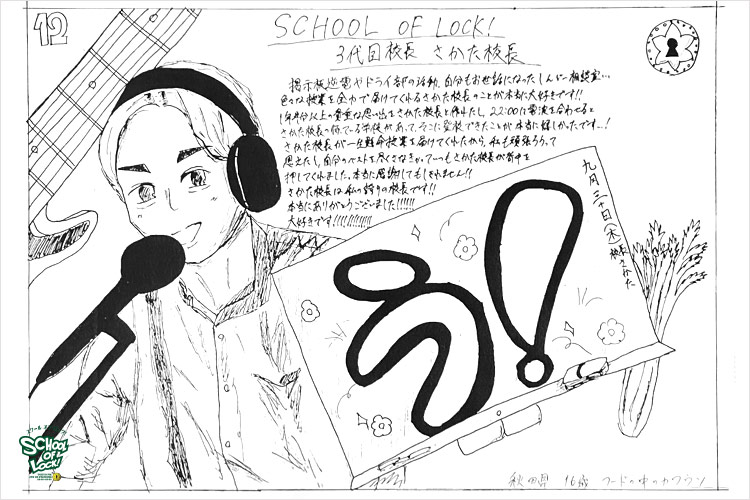 12
SCHOOL OF LOCK!
3代目校長 さかた校長
掲示板逆電やドライ部の活動、自分もお世話になったしんどー相談室...
色々な授業を全力で届けてくれるさかた校長のことが本当に大好きです!!
1年半分以上の貴重な思い出をさかた校長と作れたし、22:00に電波を合わせると
さかた校長の待っている学校があって、そこに登校できたことが本当に嬉しかったです...!
さかた校長が一生懸命授業を届けてくれたから、私も頑張ろうって
思えたし、自分のベストを尽くさなきゃってーつもさかた校長が背中を
押してくれました。本当に感謝してもしきれません!!
さかた校長は私の誇りの校長です!!
本当にありがとうございました!!!!!!
大好きです!!!!!!!!!!!!
九月三十日(木)
校長 さかた
う!
SCHOOL OF LOCK!
秋田県 16歳 フードの中のカワウソ